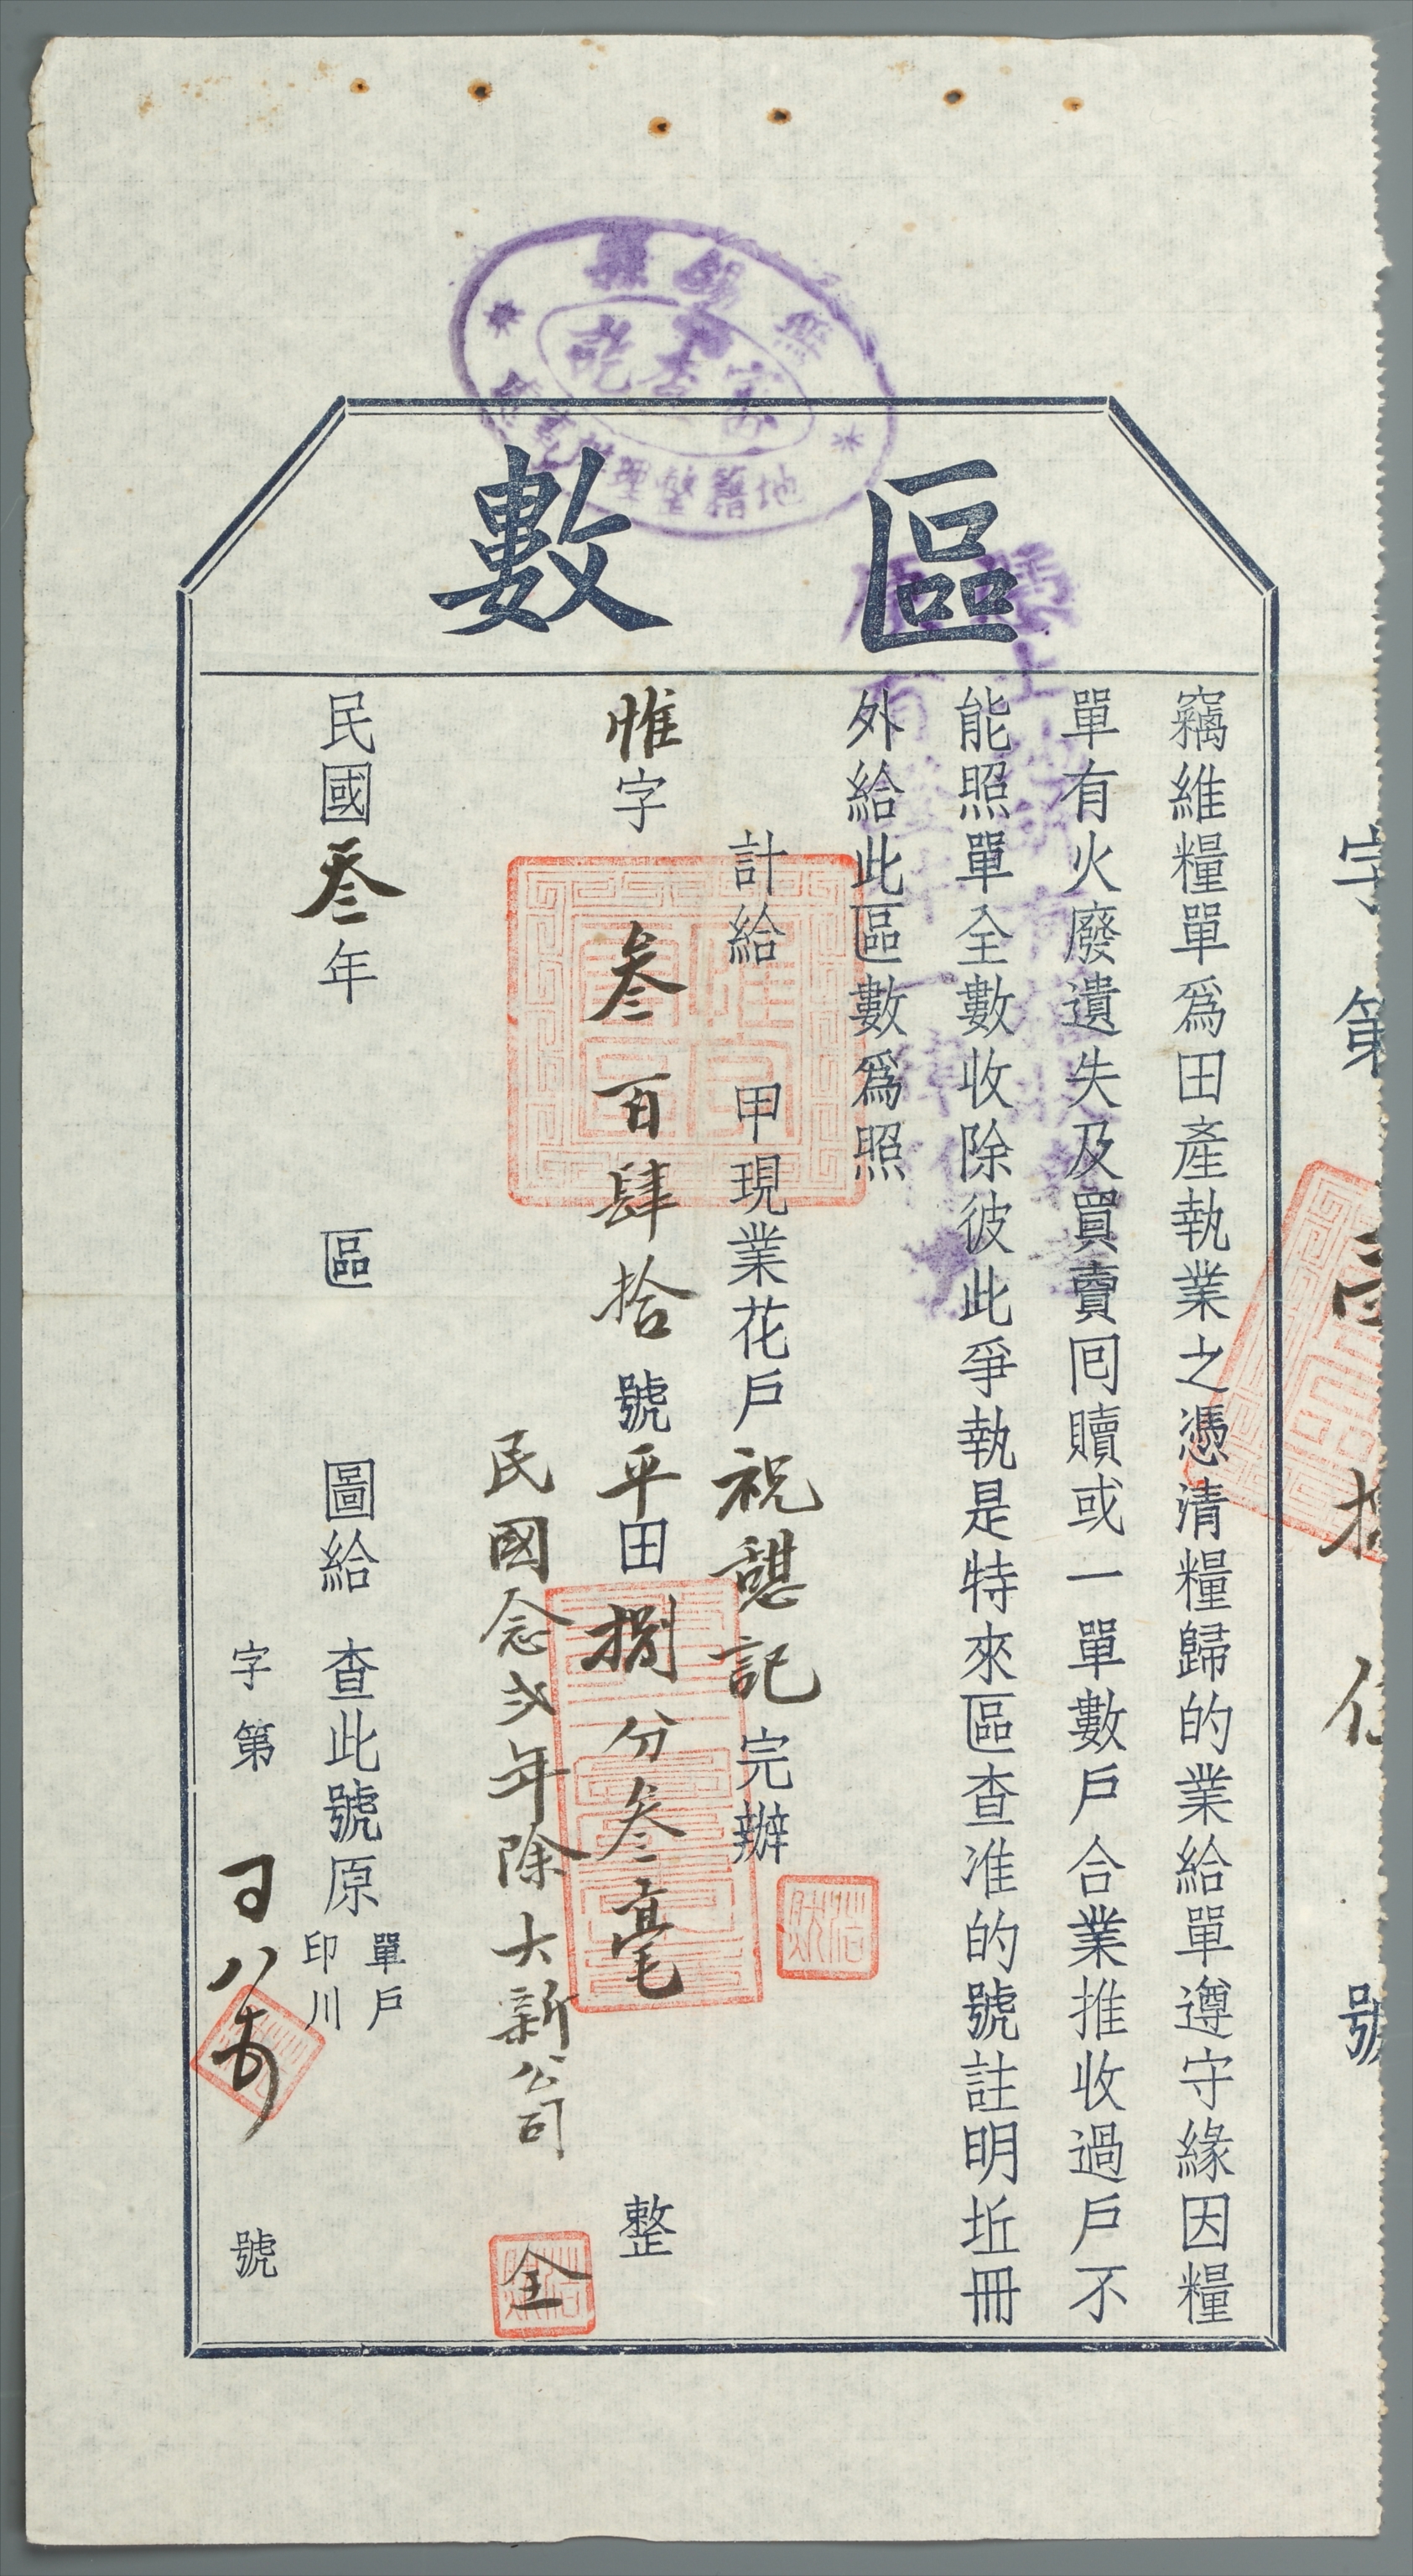 區數
字第
號
竊維糧單爲田產執業之憑清糧歸的業給單遵守緣因糧
單有火廢遺失及買賣囘贖或一單數戶合業推收過戶不
能照單全數收除彼此爭執是特來區查准的號註明坵冊
外給此區數爲照
計給 甲現業花戶祝憇記完辦
惟字叁百肆拾號平田捌分叁毫 整
民國念弍年除大新公司 全
民國叁年 區 圖給 查此號原單戶印川
字第 號
無錫縣
地籍整理辦事處
審查訖